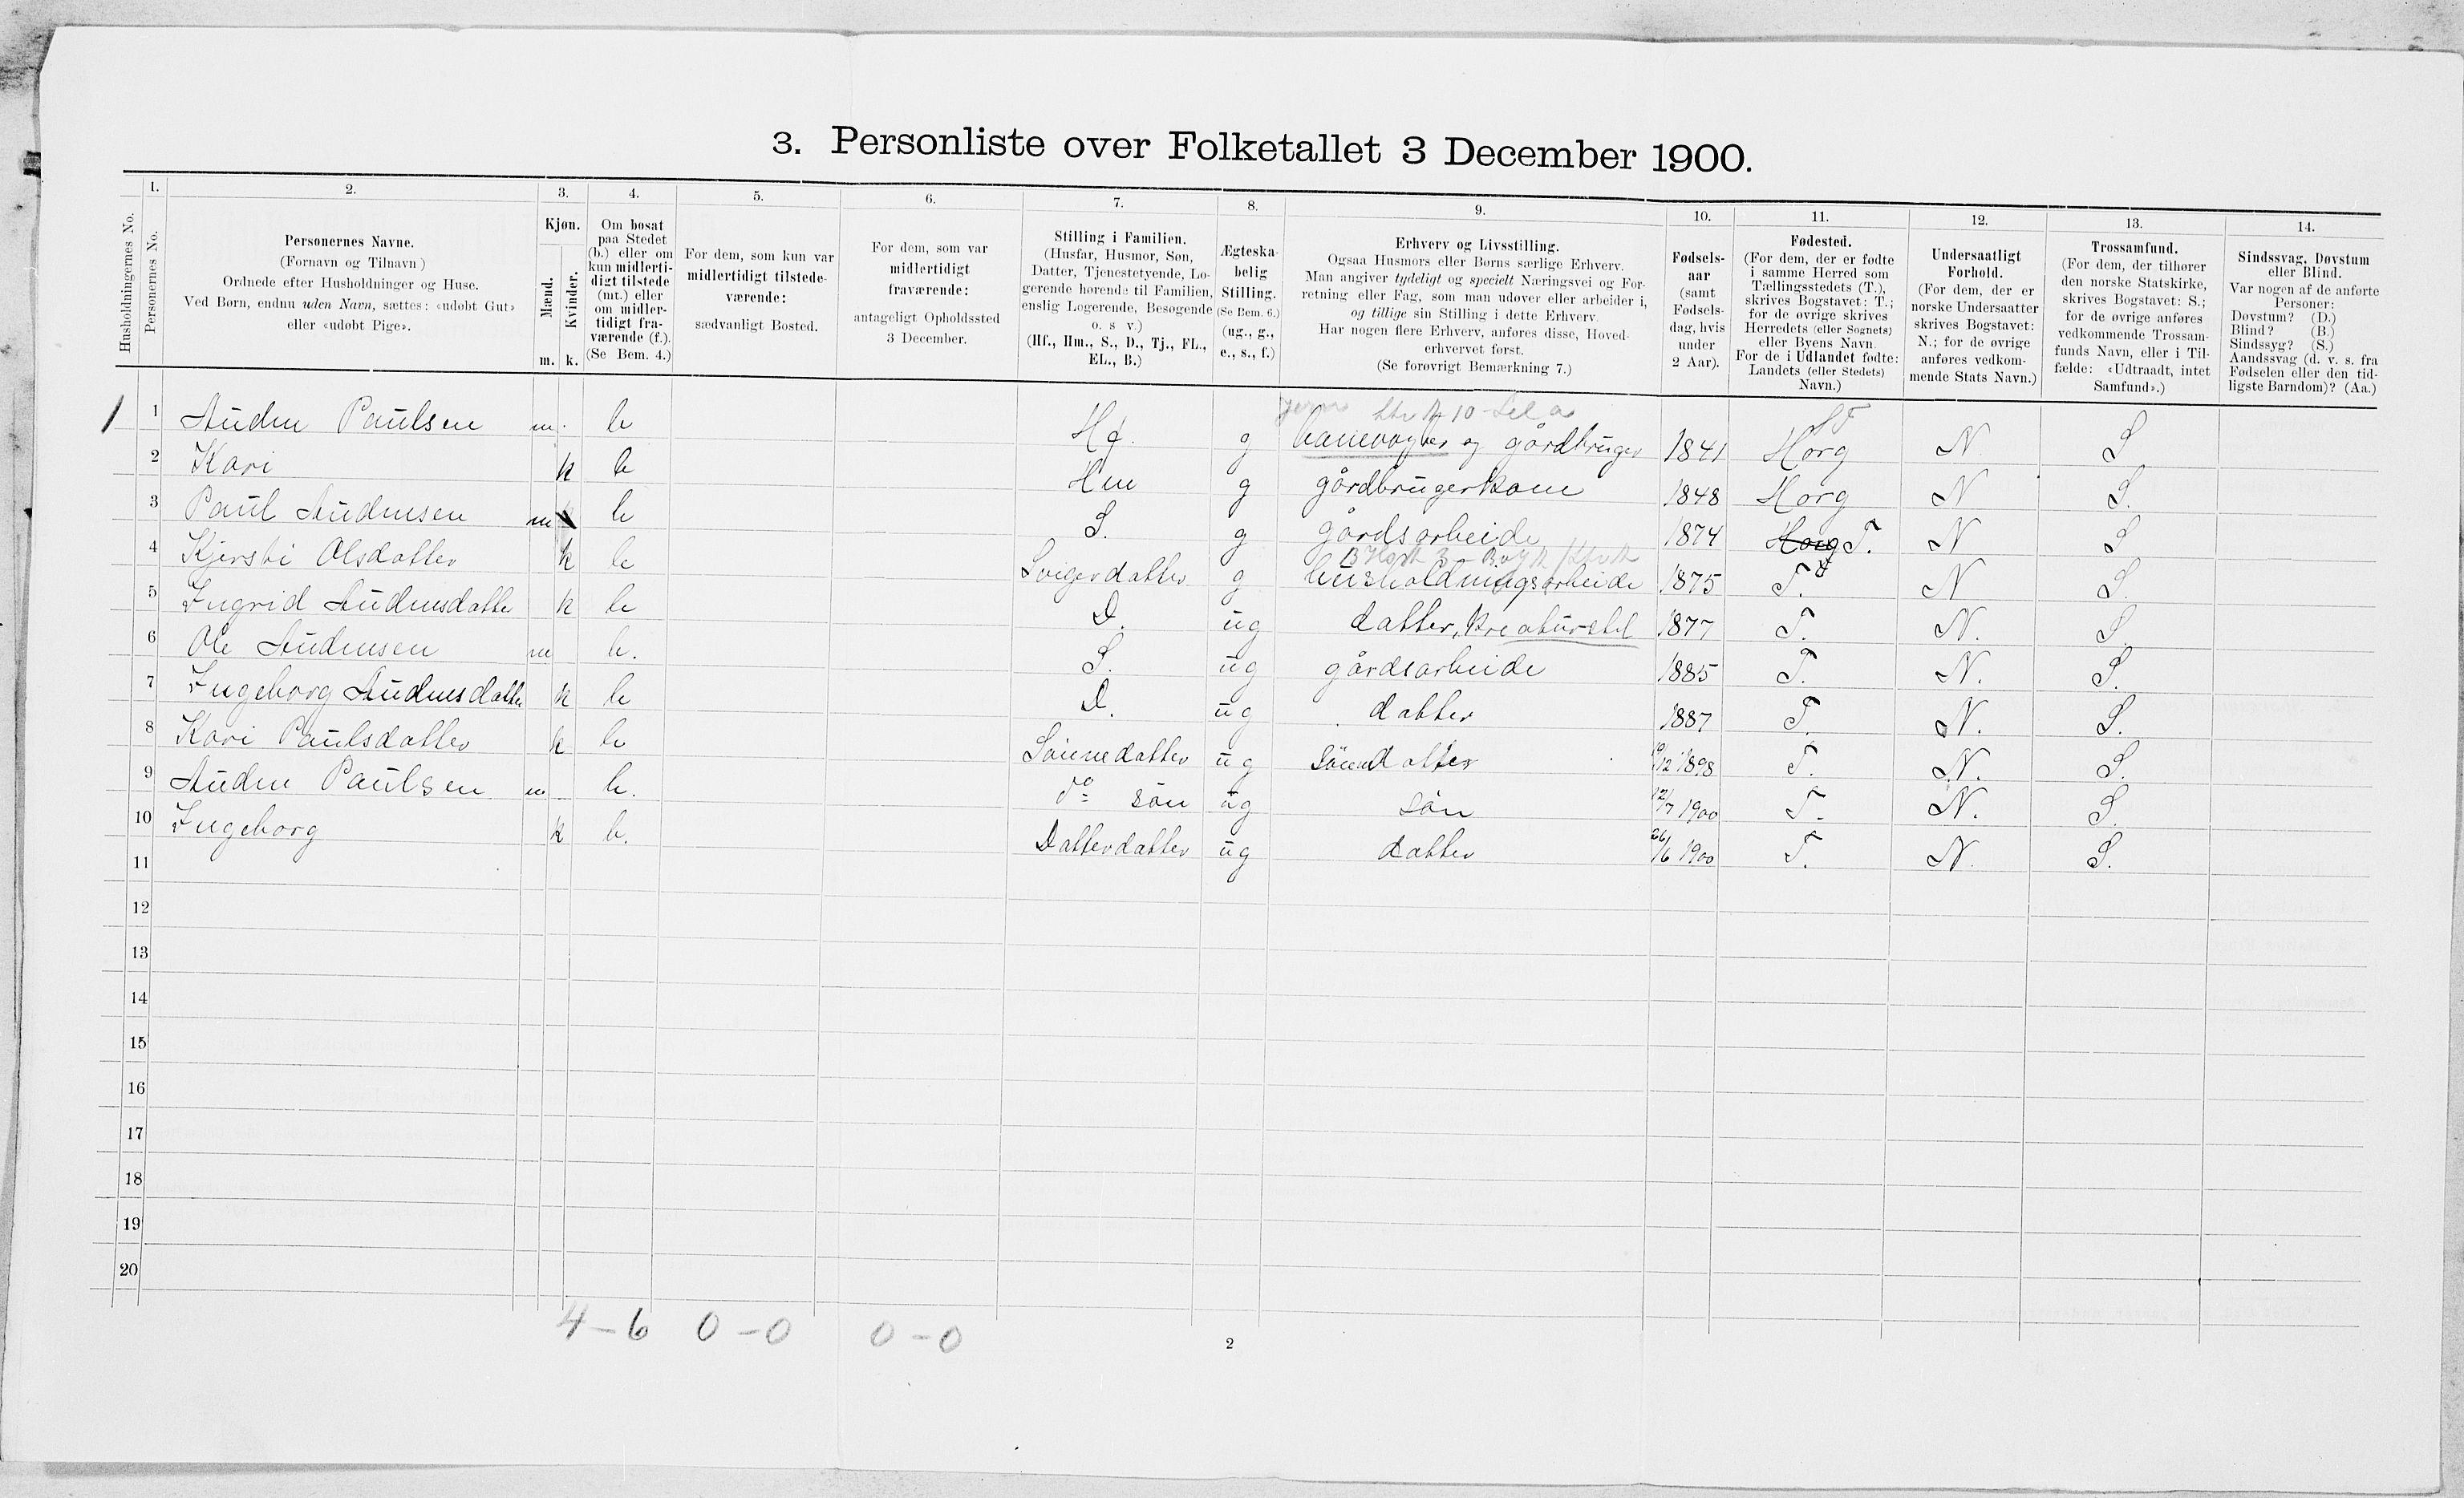 3. Personliste over Folketallet 3 December 1900.
Husholdningernes No.
1.
Personernes No.
2.
Personernes Navne.
(Fornavn og Tilnavn)
Ordnede efter Husholdninger og Huse.
Ved Børn, endnu uden Navn, sættes: «udøbt Gut»
eller «udøbt Pige».
3.
Kjøn.
Mænd.
Kvinder.
m. k.
4.
Om bosat
paa Stedet
(b.) eller om
kun midlerti-
digt tilstede
(mt.) eller
om midler-
tidigt fra-
værende (f.).
(Se Bem. 4.)
5.
For dem, som kun var
midlertidigt tilstede-
værende:
sædvanligt Bosted.
6.
For dem, som var
midlertidigt
fraværende:
antageligt Opholdssted
3 December.
7.
Stilling i Familien.
(Husfar, Husmor, Søn,
Datter, Tjenestetyende, Lo-
gerende hørende til Familien,
enslig Logerende, Besøgende
o. s v.)
(Hf., Hm., S., D., Tj., FL.,
EL., B.)
8.
Ægteska-
belig
Stilling.
(Se Bem. 6.)
(ug., g.,
e., s., f.)
9.
Erhverv og Livsstilling.
Ogsaa Husmors eller Børns særlige Erhverv.
Man angiver tydeligt og specielt Næringsvei og For-
retning eller Fag, som man udøver eller arbeider i,
og tillige sin Stilling i dette Erhverv.
Har nogen flere Erhverv, anføres disse, Hoved-
erhvervet først.
(Se forøvrigt Bemærkning 7.)
10.
Fødsels-
aar
(samt
Fødsels-
dag, hvis
under
2 Aar).
11.
Fødested.
(For dem, der er fødte
i samme Herred som
Tællingsstedets (T.),
skrives Bogstavet: T.;
for de øvrige skrives
Herredets (eller Sognets)
eller Byens Navn.
For de i Udlandet fødte:
Landets (eller Stedets)
Navn.)
12.
Undersaatligt
Forhold.
(For dem, der er
norske Undersaatter
skrives Bogstavet:
N.; for de øvrige
anføres vedkom-
mende Stats Navn.)
13.
Trossamfund.
(For dem, der tilhører
den norske Statskirke,
skrives Bogstavet: S.;
for de øvrige anføres
vedkommende Trossam-
funds Navn, eller i Til-
fælde: «Udtraadt, intet
Samfund».)
14.
Sindssvag, Døvstum
eller Blind.
Var nogen af de anførte
Personer:
Døvstum? (D.)
Blind? (B.)
Sindssyg? (S.)
Aandssvag (d. v. s. fra
Fødselen eller den tid-
ligste Barndom)? (Aa.)
1 1 Audun Paulsen m. b Hf. g banevogter og gårdbruger 1841 Horg N S
2 Kari k b Hm g gårdbrugerkone 1848 Horg N S.
3 Paul Audunsen m b S. g gårdsarbeide 1874 Horg T. N S
4 Kjersti Olsdatter k b Svigerdatter g husholdningsarbeide 1875 T. N S.
5 Ingrid Audunsdatter k b D. ug datter, kreaturstel 1877 T. N. S.
6 Ole Audunsen m b. S. ug gårdsarbeide 1885 T. N. S.
7 Ingeborg Audunsdatter k b D. ug datter 1887 T. N. S.
8 Kari Paulsdatter k b Sønnedatter ug sønnedatter /12 1898 T. N. S.
9 Audun Paulsen m b. do søn ug søn 12/7 1900 T. N. S.
10 Ingeborg k b. Datterdatter ug datter 26/6 1900 T. N. S.
11
12
13
14
15
16
17
18
19
20
4 - 6 0 - 0 0 - 0
2